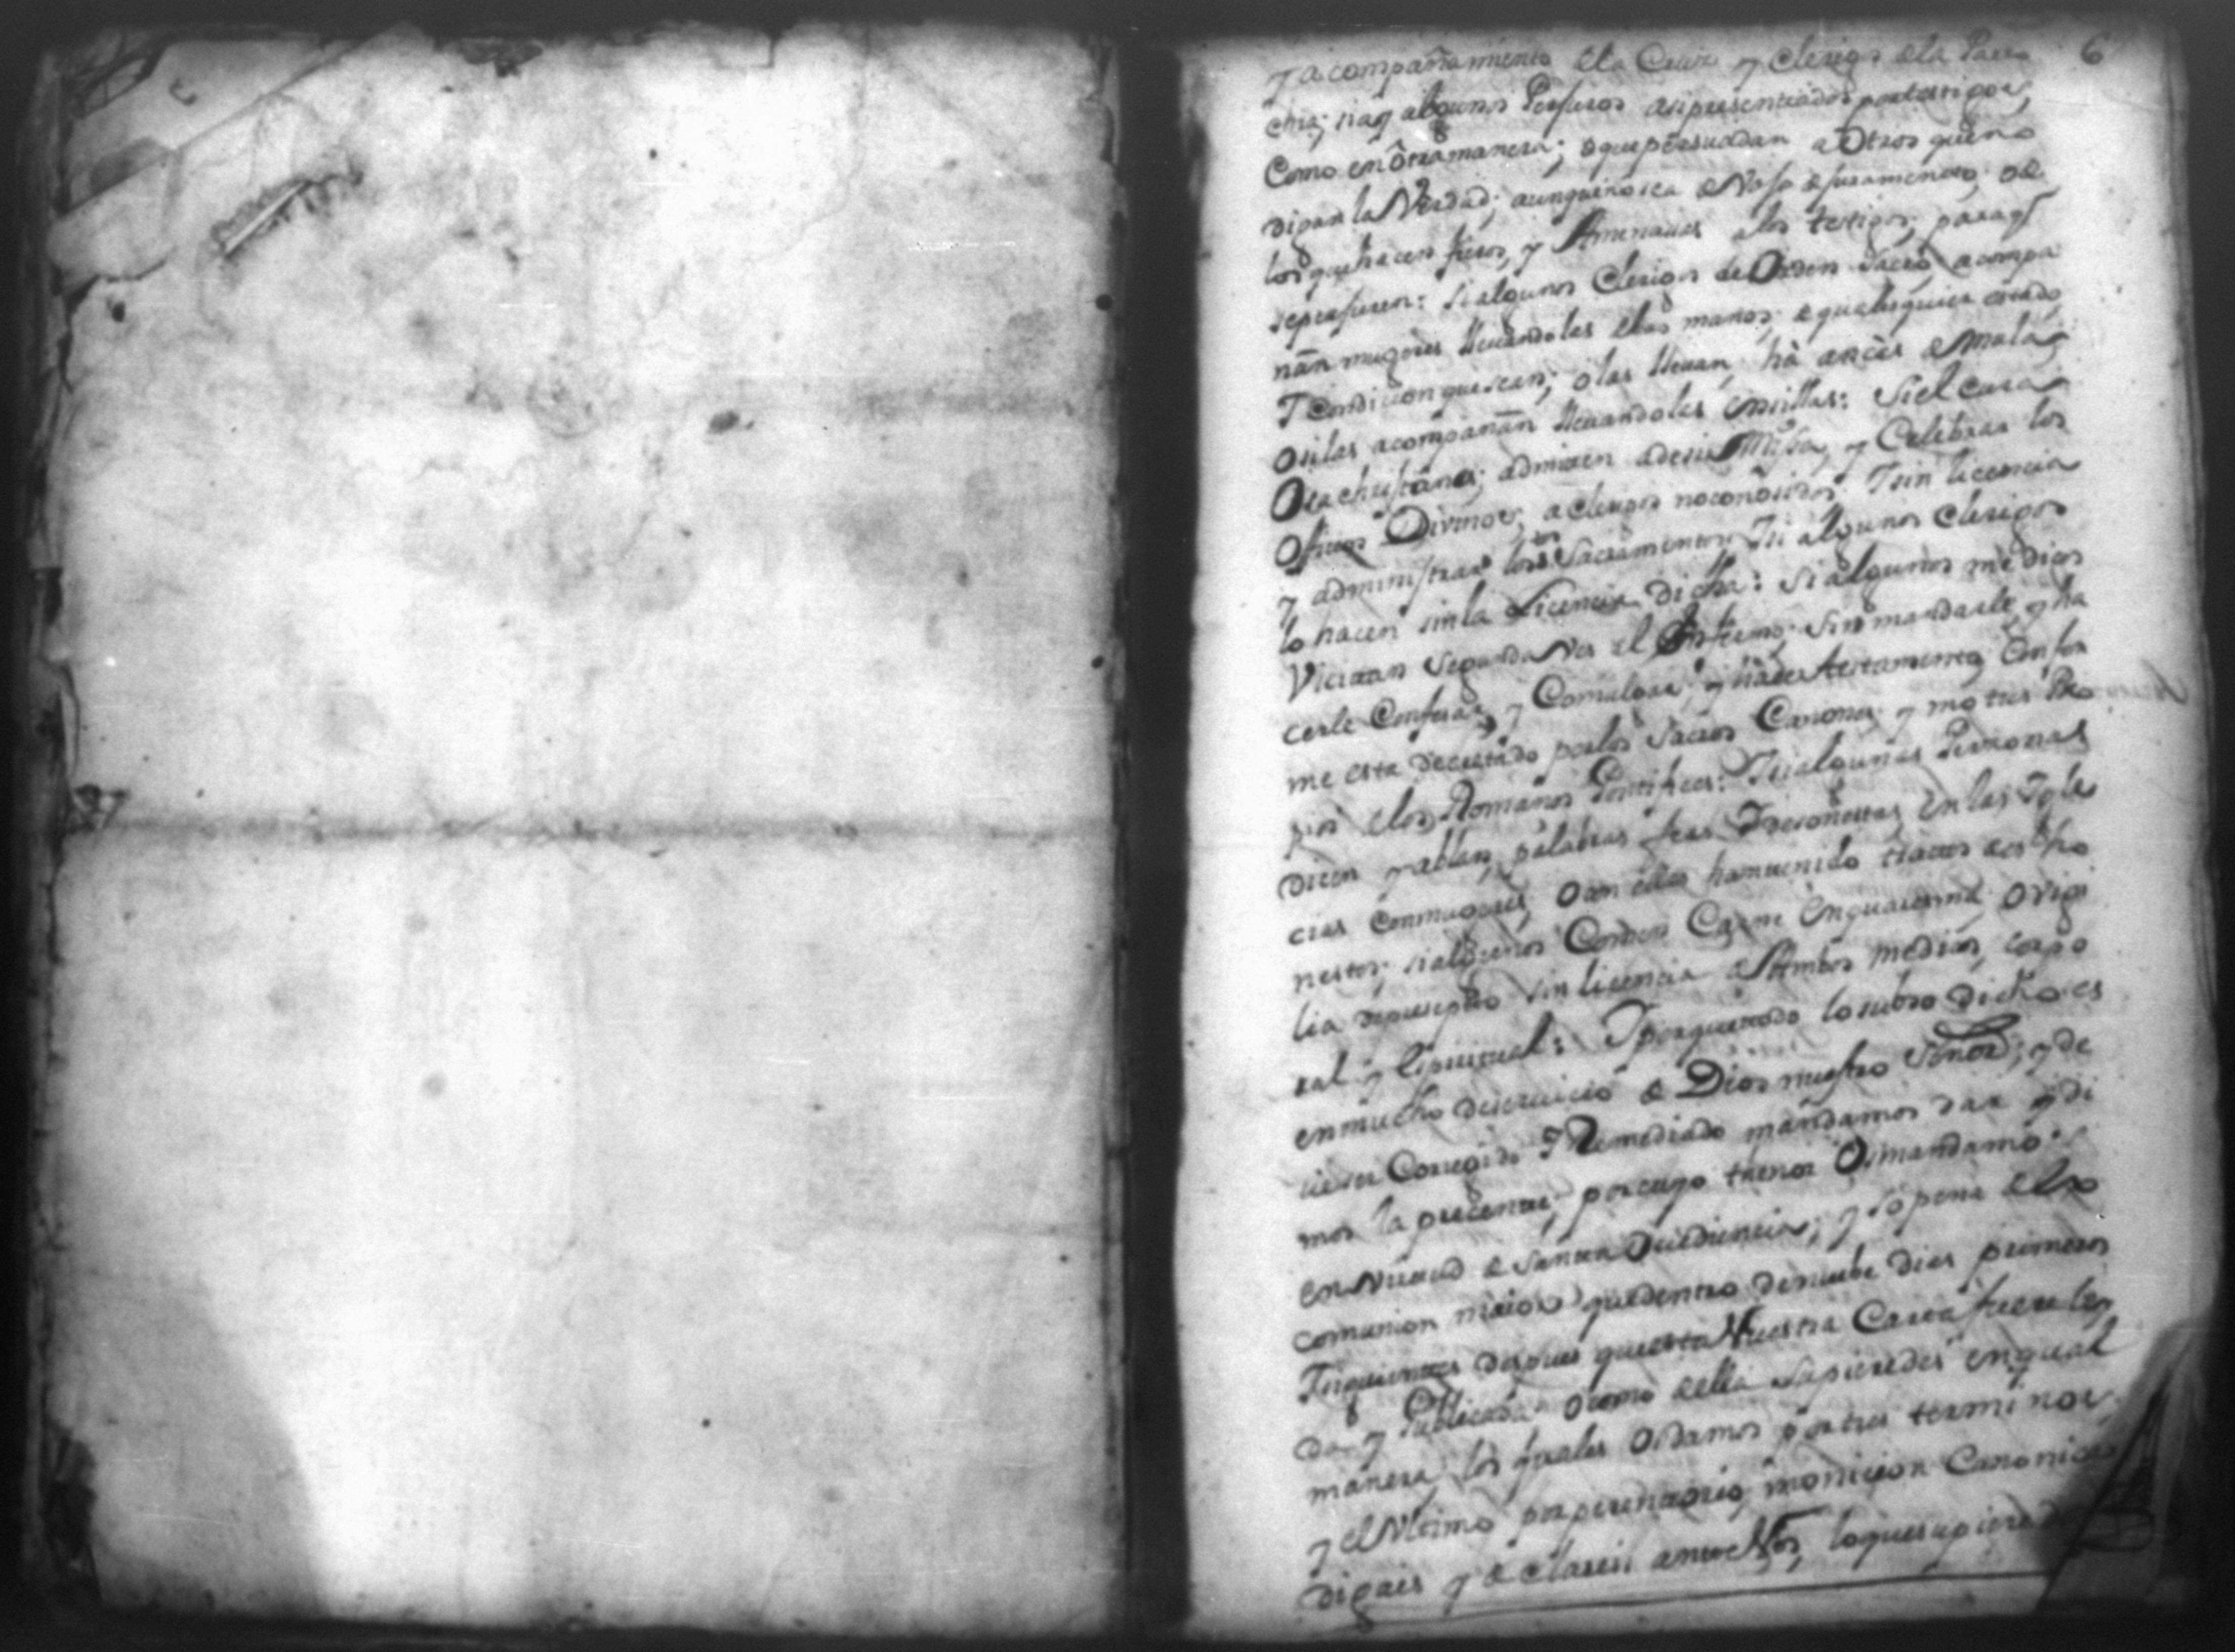 6
y acompañamiento de la Cruz y clerigos dela Parro
chia; si aỹ algunos Perjuros asi presentados por testigos,
Como en otra manera; o que persuadan a Otros que no
digan la Verdad; aunque no sea de vajo de juramento; o de
los que hacen fieros, y Amenasas a los testigos, para q̃
se perjuren: si algunos Clerigos de Orden Sacro acompa
ñan mugeres lleuandolas de las manos, de qualesquier estado
Y Condicion que sean; o las lleuan, hà ancas de mula;
O si las acompañan lleuandolas en sillas: Si el Cura
O sachristanes; admiten a desir Missa, y Celebrar los
Ofisios Divinos, a clerigos no conosidos, Y sin licencia
y administrar los Stos Sacramentos; Y si algunos Clerigos
lo hacen sin la Licencia dicha: Si algunos medicos
Vicitan segunda Ves el Enfermo; sin mandarle, y ha
cerle Confesar, y Comulgar; y hàser testamento, Confor
me esta decretado por los Sacros Canones, y motus Pro
pios de los Romanos Pontifices: Y si algunas Personas
dicen y ablan, palabras feas Y desonestas, en las Ygle
cias Con mugeres, O con ellas han tenido tratos desho
nestos; si algunos Comen Carne En quaresma, O vigi
lia de presepto sin licencia de Ambos medicos, corpo
ral y Espiritual: Y porque todo lo subso dicho es
en mucho deseruicio de Dios nuestro Señor; y de
ue ser Corregido Y Remediado mandamos dar y di
mos la presente; por cuyo thenor Os mandamos
en Virtud de Santa Ouediencia; y so pena de Ex
comunion maior que dentro de nuebe dias primeros
Siguientes despues que esta Nuestra Carta fuere ley
da y Publicada o como de ella Supieredes en qual
manera, los quales Os damos por tres terminos,
y el Vltimo por perentorio, monicion Canonica
digais y declareis ante Nos, lo que supieredes